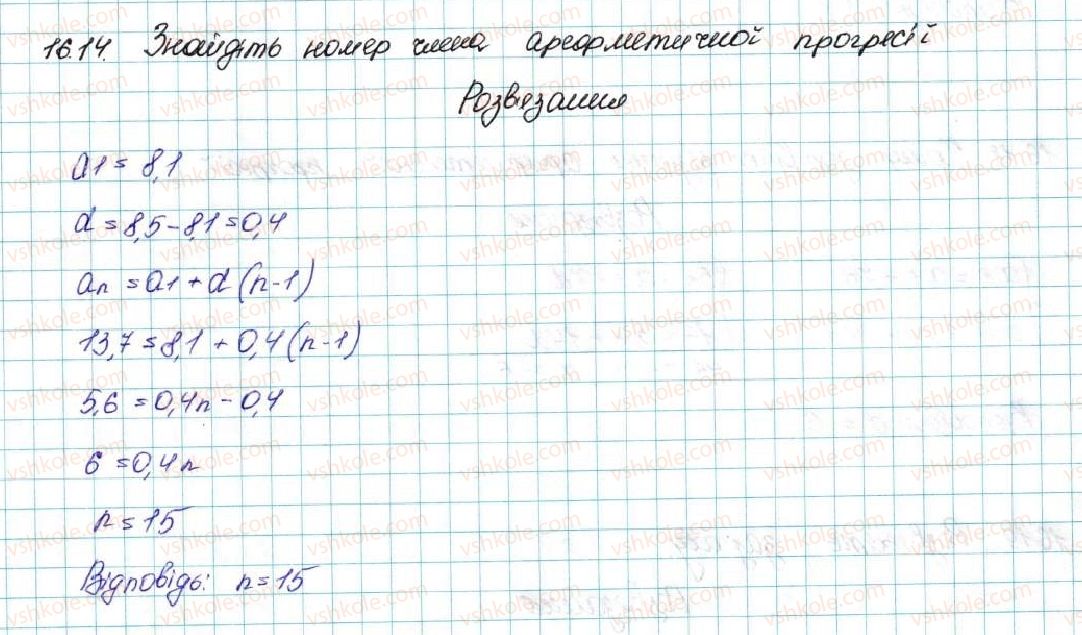 16.14. Знайдіть номер члена арефметичної прогресії
Розв'язання
a1 = 8,1
d = 8,5 - 8,1 = 0,4
an = a1 + d (n-1)
13,7 = 8,1 + 0,4 (n-1)
5,6 = 0,4n - 0,4
6 = 0,4n
n = 15
Відповідь: n = 15